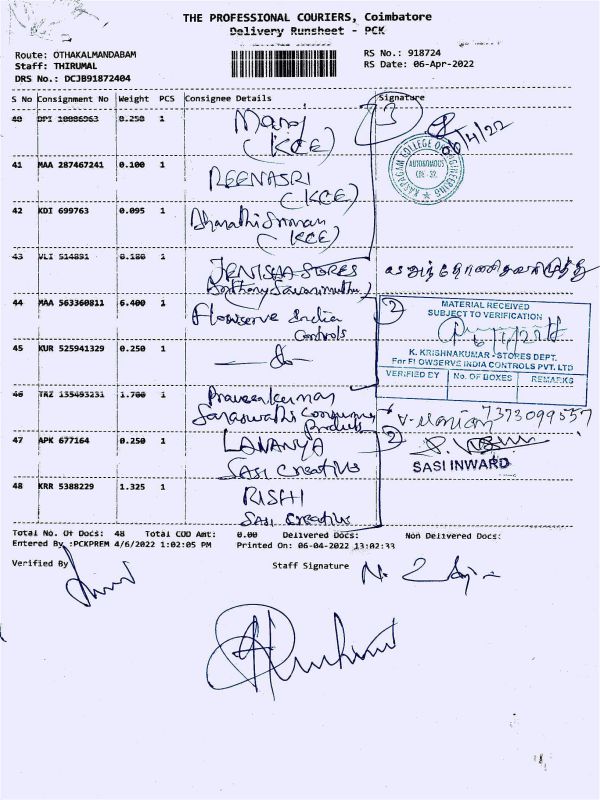 THE PROFESSIONAL COURIERS, Coimbatore
Delivery Runsheet - PCK
Route: OTHAKALMANDABAM
Staff: THIRUMAL
DRS No.: DCJB91872404
RS No.: 918724
RS Date: 06-Apr-2022
S No Consignment No Weight PCS Consignee Details Signature
40 DPI 10086963 0.250 1 Manoj 3
(KCE) 06/4/22
KARPAGAM COLLEGE OF ENGINEERING
AUTONOMOUS
CBE - 32.
41 MAA 287467241 0.100 1 REENASRI
(KCE)
42 KDI 699763 0.095 1
(KCE)
43 VLI 514891 0.180 1 JENISHA STORES
44 MAA 563360811 6.400 1 Flowserve India 2
Controls
MATERIAL RECEIVED
SUBJECT TO VERIFICATION
K. KRISHNAKUMAR - STORES DEPT.
For FLOWSERVE INDIA CONTROLS PVT. LTD
VERIFIED BY No. OF BOXES REMARKS
45 KUR 525941329 0.250 1
46 TRZ 135493231 1.700 1 Praveenkumar
Saraswathi Consumer
Products
7373099557
47 APK 677164 0.250 1 LAVANYA 2
SASI Creatives
SASI INWARD
48 KRR 5388229 1.325 1 RISHI
SASI Creatives
Total No. Of Docs: 48 Total COD Amt: 0.00 Delivered Docs: Non Delivered Docs:
Entered By :PCKPREM 4/6/2022 1:02:05 PM Printed On: 06-04-2022 13:02:33
Verified By Staff Signature